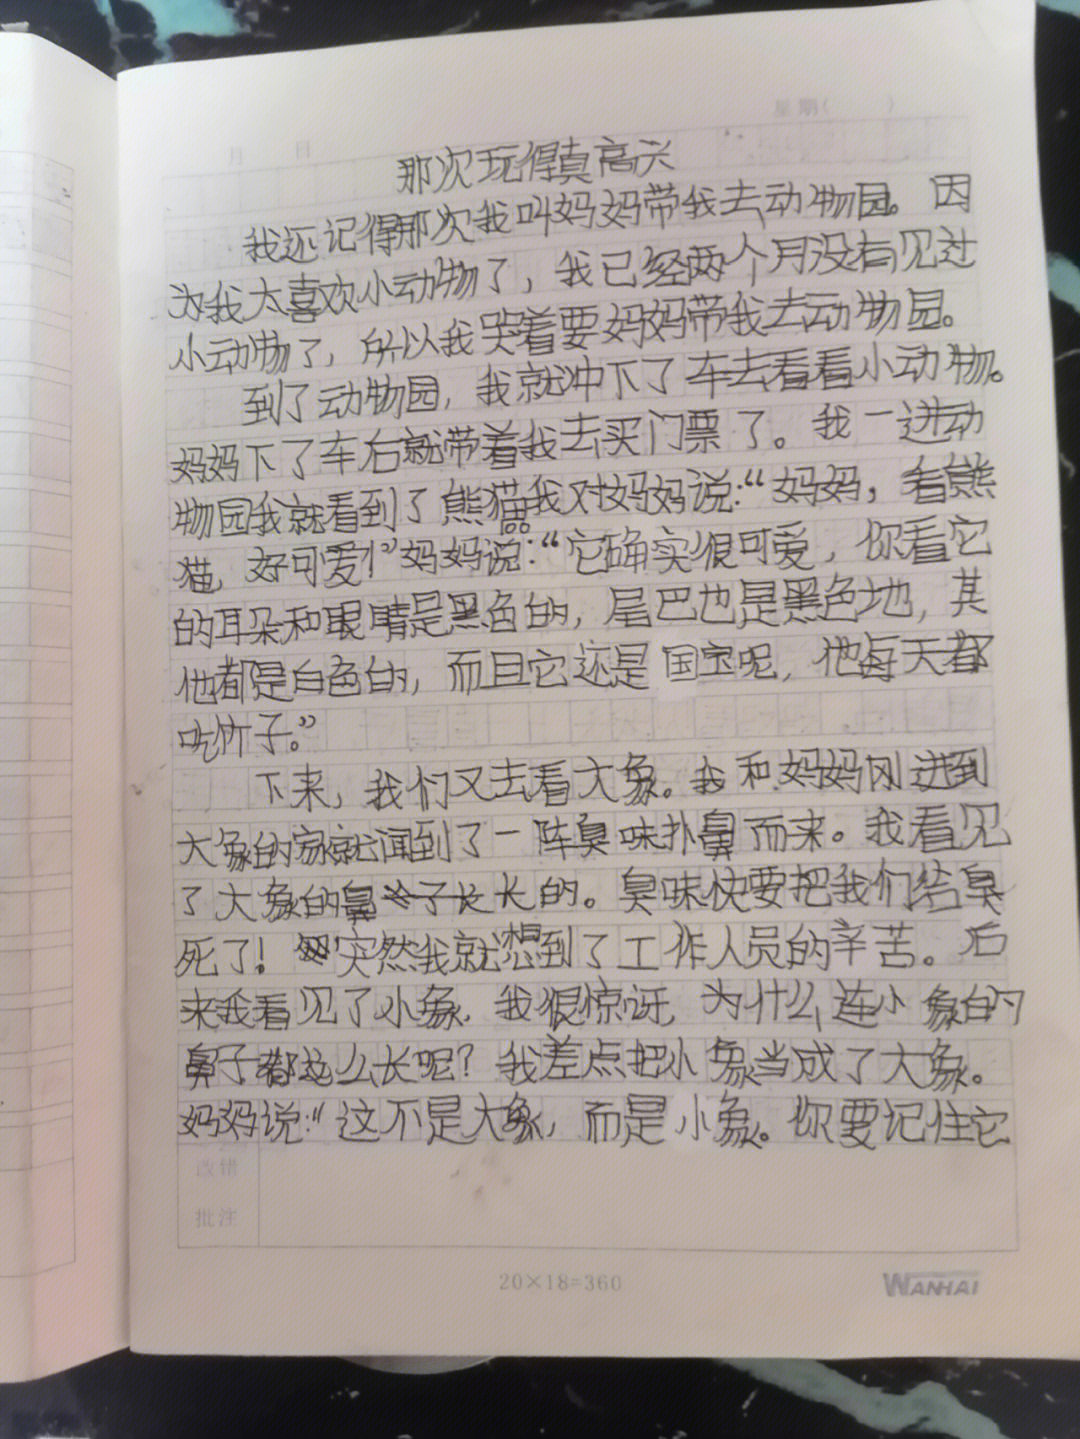 星期( )
月 日
那次玩得真高兴
我还记得那次我叫妈妈带我去动物园。因
为我太喜欢小动物了，我已经两个月没有见过
小动物了，所以我哭着要妈妈带我去动物园。
到了动物园，我就冲下了车去看看小动物。
妈妈下了车后就带着我去买门票了。我一进动
物园我就看到了熊猫我对妈妈说：“妈妈，看熊
猫，好可爱！”妈妈说：“它确实很可爱，你看它
的耳朵和眼睛是黑色的，尾巴也是黑色地，其
他都是白色的，而且它还是国宝呢，他每天都
吃竹子。”
下来，我们又去看大象。我和妈妈刚进到
大象的家就闻到了一阵臭味扑鼻而来。我看见
了大象的鼻子长长的。臭味快要把我们给臭
死了！突然我就想到了工作人员的辛苦。后
来我看见了小象，我很惊讶，为什么连小象的
鼻子都这么长呢？我差点把小象当成了大象。
妈妈说：“这不是大象，而是小象。你要记住它
改错
批注
20×18=360
WANHAI